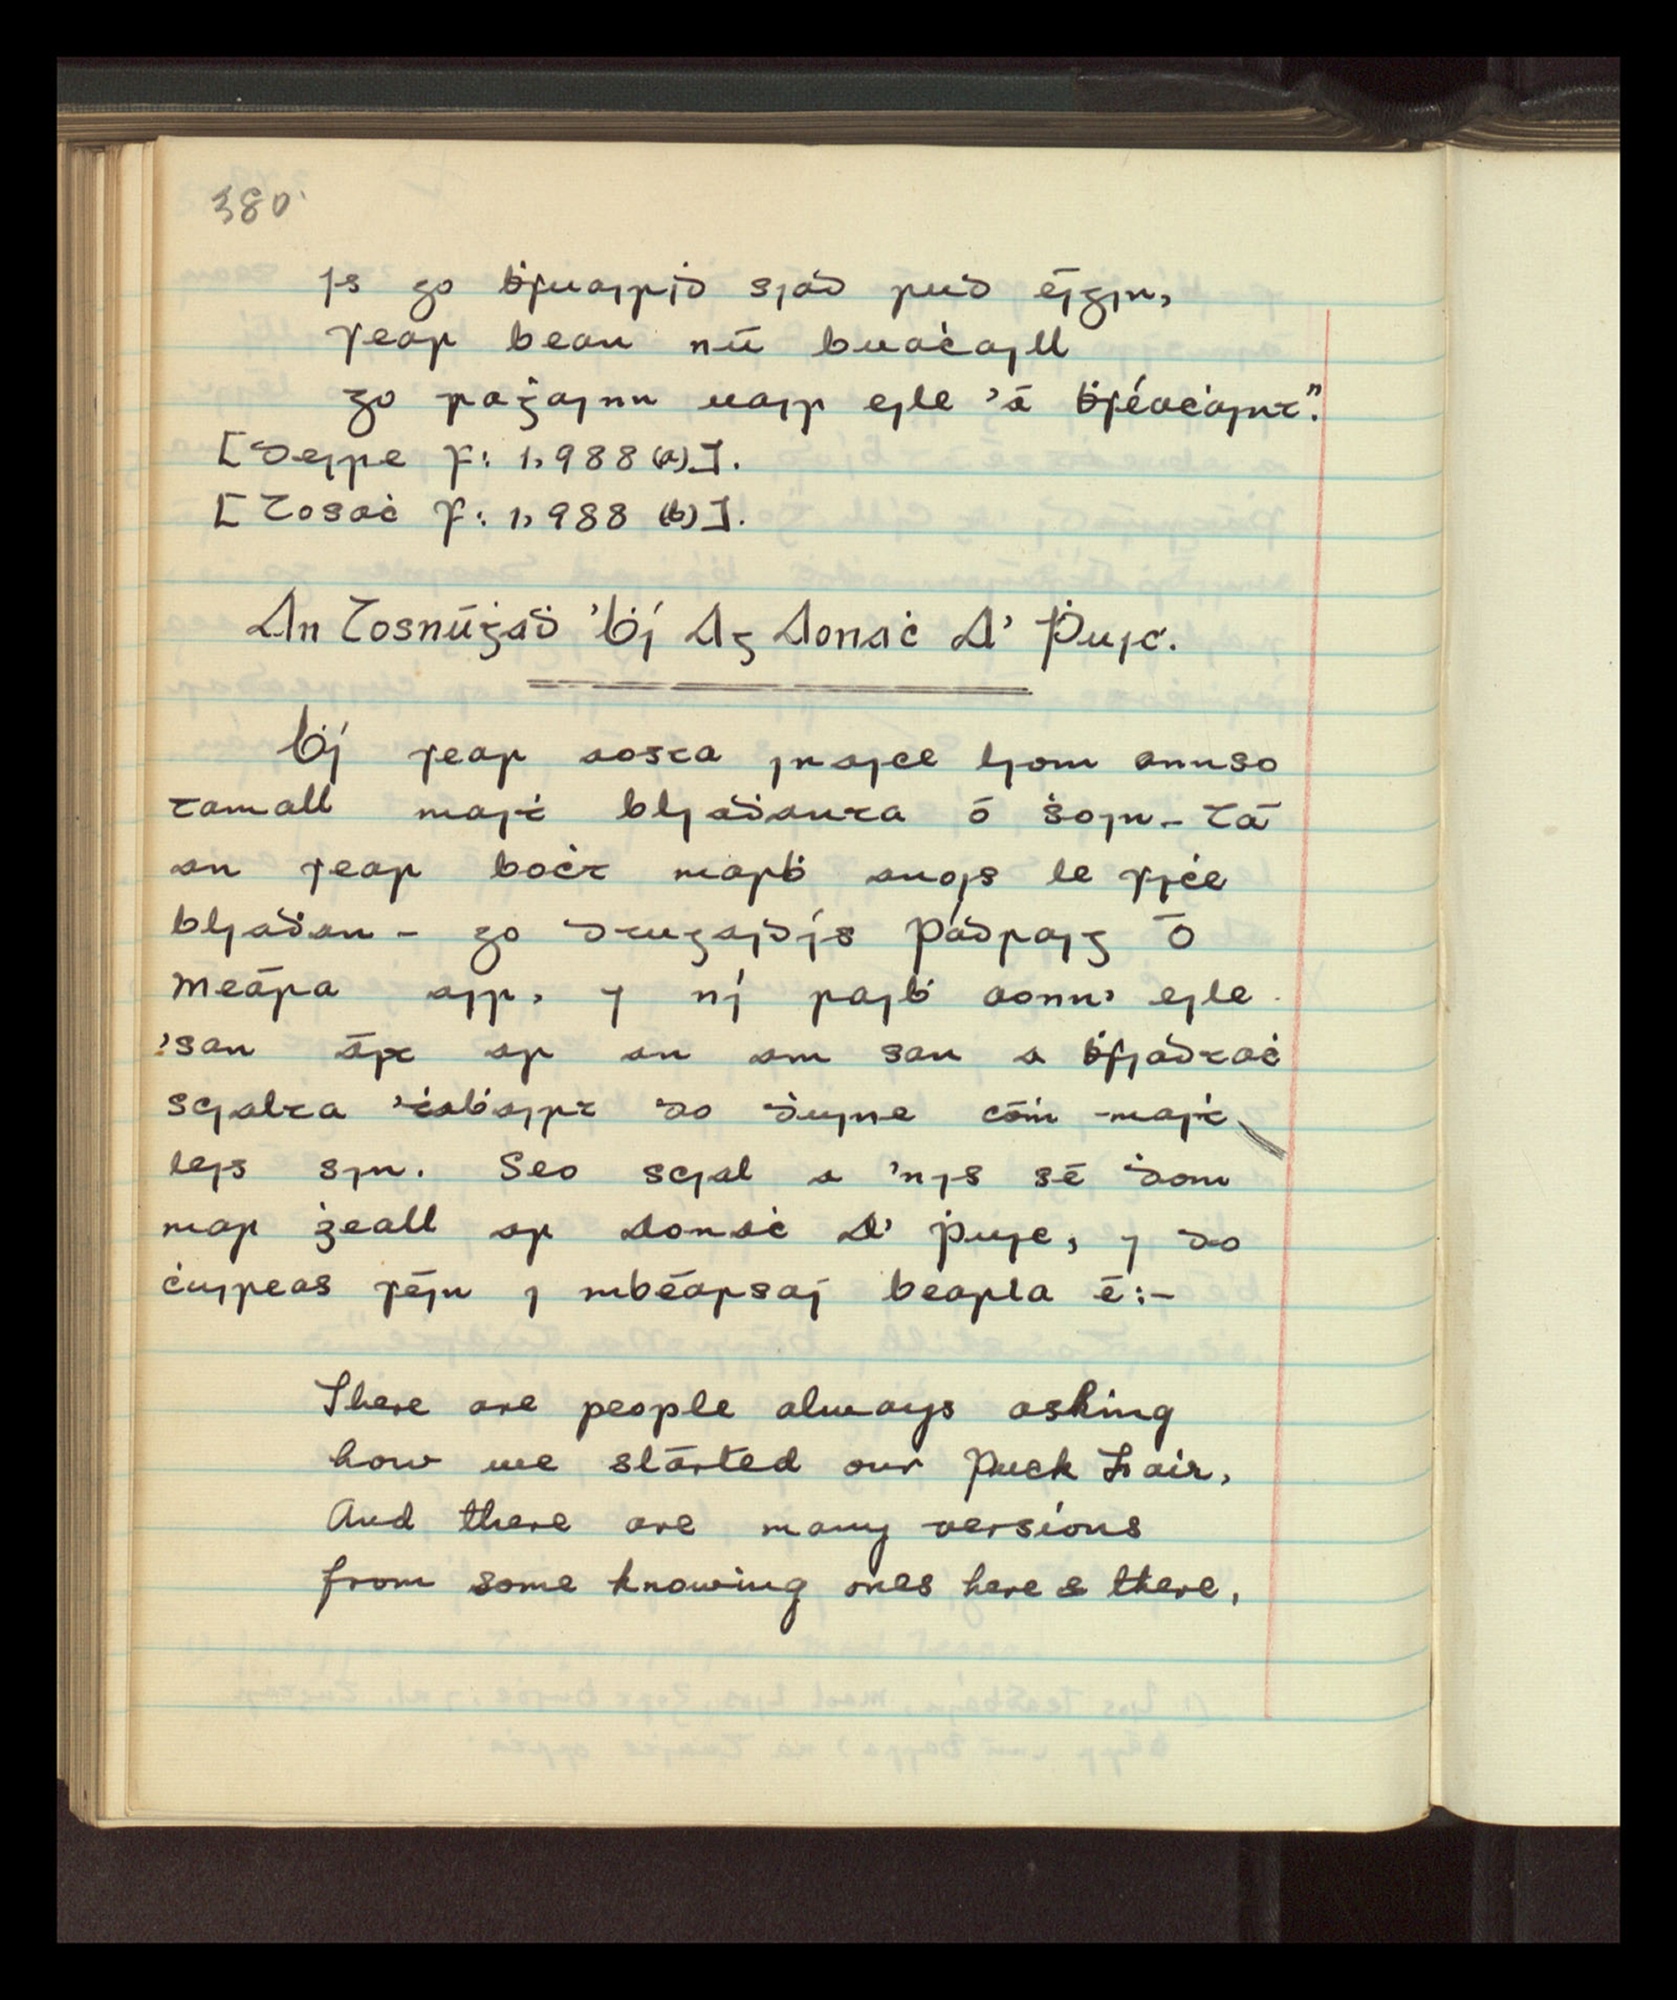 380
Is go ḃfuairid siad rud éigin,
fear bean nú buaċaill
go raġainn uair eile 'á ḃféaċaint."
[Deire F: 1,988 (a)].
[Tosaċ F: 1,988 (b)].
An Tosnúġaḋ 'Ḃí Ag Aonaċ A' Ṗuic.
Ḃí fear aosta inaice liom annso
tamall maiṫ bliaḋanta ó ṡoin - Tá
an fear boċt marḃ anois le fiċe
bliaḋan - go dtugaidís Pádraig Ó
Meára air, ⁊ ní raiḃ aonn' eile
'san áit ar an am san a ḃfiadtaċ
scialta 'ṫaḃairt do ḋuine cóṁ-maiṫ
leis sin. Seo scial a 'nis sé ḋom
mar ġeall ar Aonaċ A' Ṗuic, ⁊ do
ċuireas féin i mbéarsaí bearla é:-
There are people always asking
how we started our Puck Fair,
And there are many versions
from some knowing ones here & there,